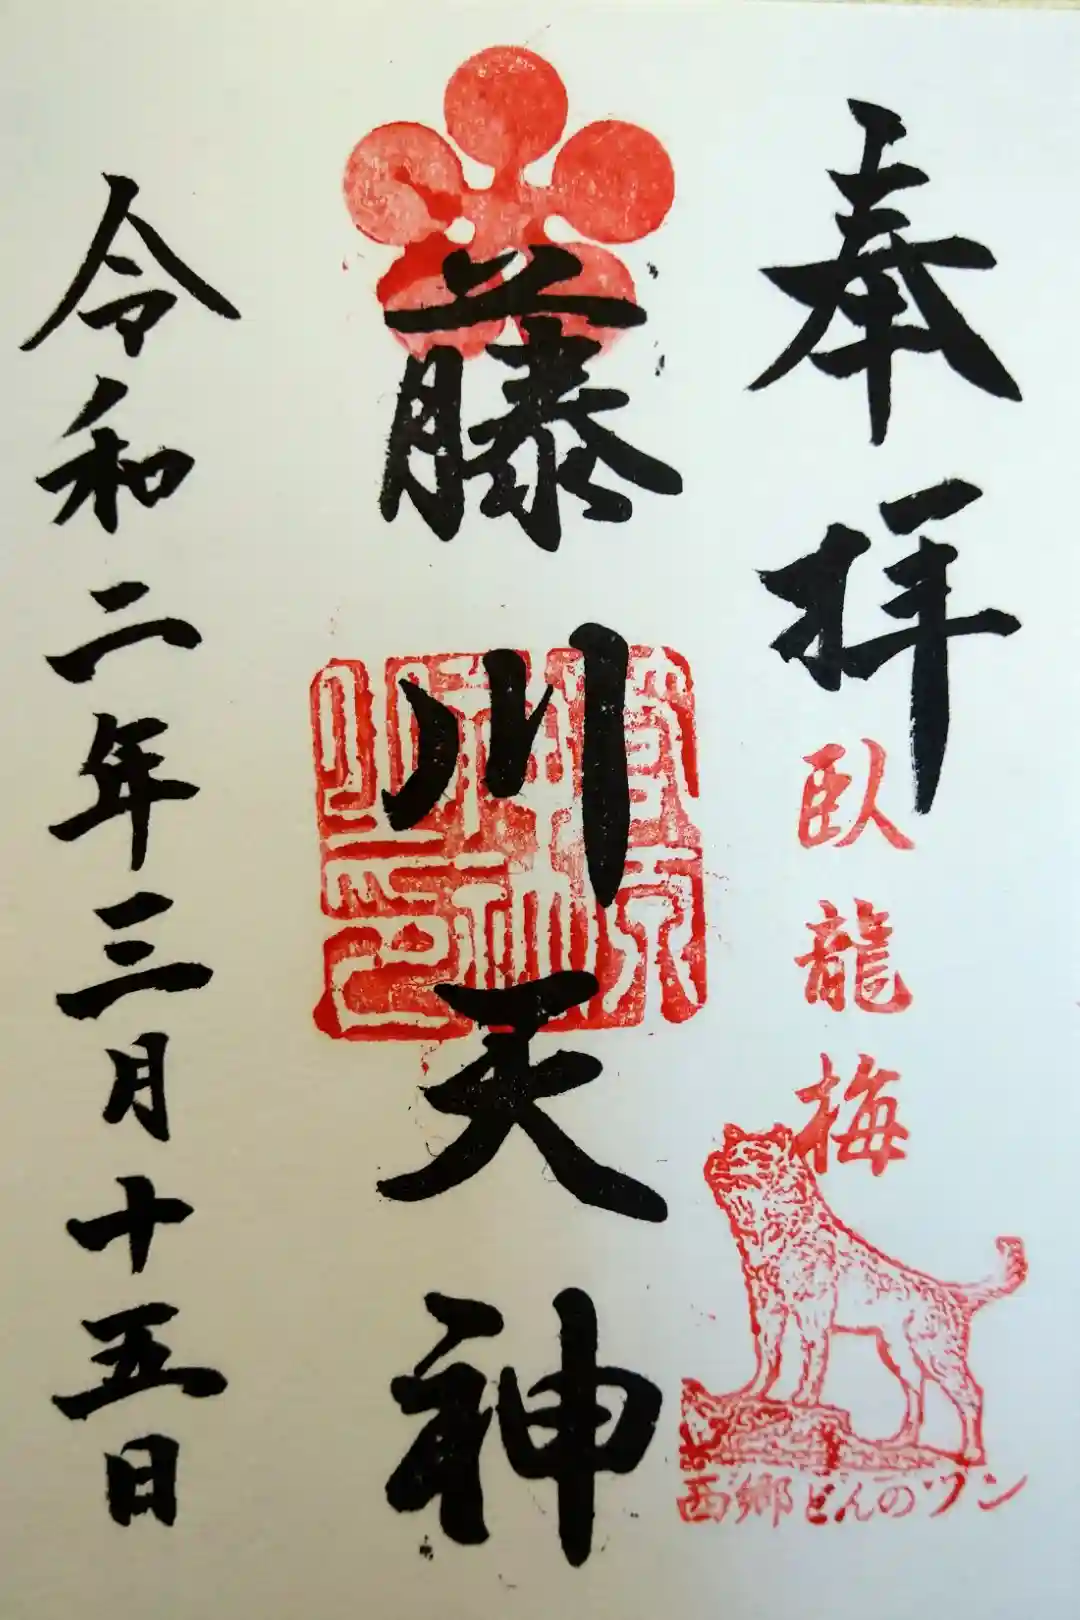 奉拝
臥龍梅
西郷どんのツン
藤川天神
令和二年三月十五日